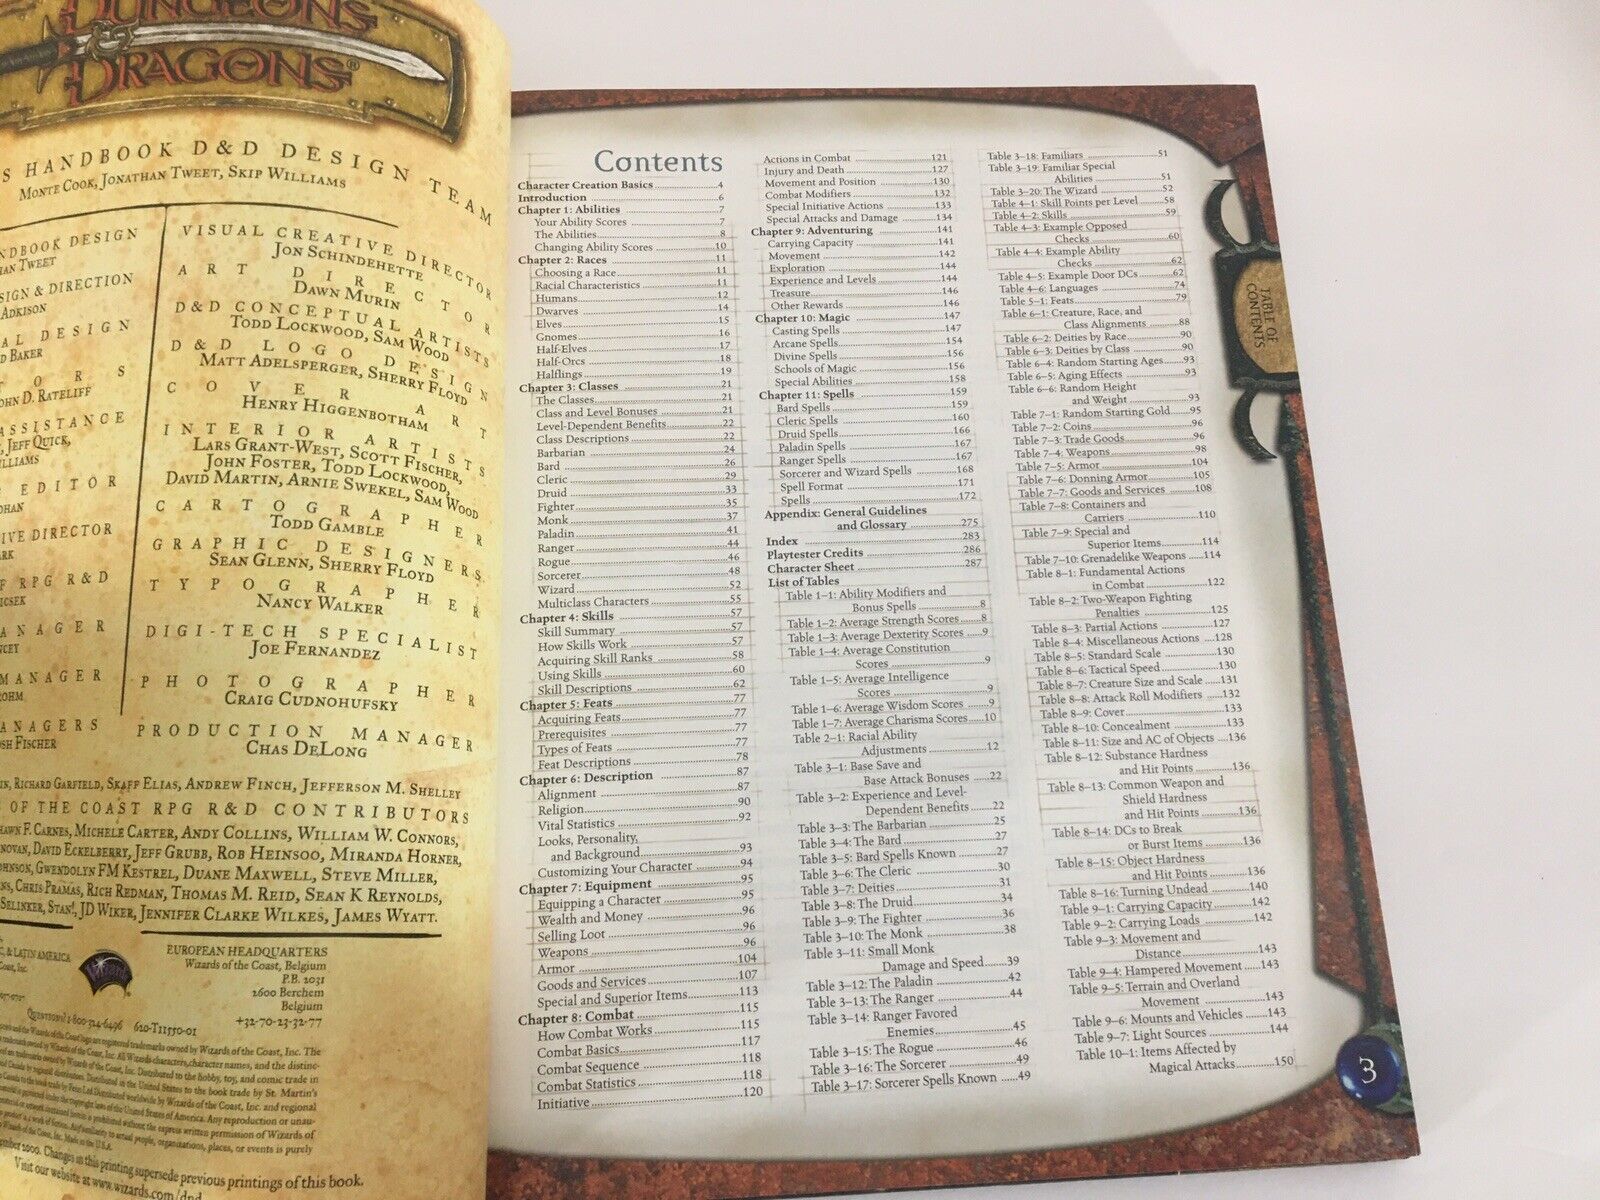 DUNGEONS
DRAGONS®
S HANDBOOK D&D DESIGN TEAM
MONTE COOK, JONATHAN TWEET, SKIP WILLIAMS
NDBOOK DESIGN
HAN TWEET
SIGN & DIRECTION
ADKISON
AL DESIGN
D BAKER
TORS
OHN D. RATELIFF
ASSISTANCE
, JEFF QUICK,
ILLIAMS
EDITOR
OHAN
IVE DIRECTOR
ARK
F RPG R&D
ICSEK
ANAGER
NCEY
MANAGER
ROHM
ANAGERS
OSH FISCHER
VISUAL CREATIVE DIRECTOR
JON SCHINDEHETTE
ART DIRECTOR
DAWN MURIN
D&D CONCEPTUAL ARTISTS
TODD LOCKWOOD, SAM WOOD
D&D LOGO DESIGN
MATT ADELSPERGER, SHERRY FLOYD
COVER ART
HENRY HIGGENBOTHAM
INTERIOR ARTISTS
LARS GRANT-WEST, SCOTT FISCHER,
JOHN FOSTER, TODD LOCKWOOD,
DAVID MARTIN, ARNIE SWEKEL, SAM WOOD
CARTOGRAPHER
TODD GAMBLE
GRAPHIC DESIGNERS
SEAN GLENN, SHERRY FLOYD
TYPOGRAPHER
NANCY WALKER
DIGI-TECH SPECIALIST
JOE FERNANDEZ
PHOTOGRAPHER
CRAIG CUDNOHUFSKY
PRODUCTION MANAGER
CHAS DELONG
IN, RICHARD GARFIELD, SKAFF ELIAS, ANDREW FINCH, JEFFERSON M. SHELLEY
S OF THE COAST RPG R&D CONTRIBUTORS
HAWN F. CARNES, MICHELE CARTER, ANDY COLLINS, WILLIAM W. CONNORS,
ONOVAN, DAVID ECKELBERRY, JEFF GRUBB, ROB HEINSOO, MIRANDA HORNER,
OHNSON, GWENDOLYN FM KESTREL, DUANE MAXWELL, STEVE MILLER,
NS, CHRIS PRAMAS, RICH REDMAN, THOMAS M. REID, SEAN K REYNOLDS,
SELINKER, STAN!, JD WIKER, JENNIFER CLARKE WILKES, JAMES WYATT.
C, & LATIN AMERICA
Coast, Inc.
QUESTIONS? 1-800-324-6496 620-T11550-01
Wizards
EUROPEAN HEADQUARTERS
Wizards of the Coast, Belgium
P.B. 2031
2600 Berchem
Belgium
+32-70-23-32-77
are registered trademarks owned by Wizards of the Coast, Inc. The
trademarks owned by Wizards of the Coast, Inc. All Wizards characters, character names, and the distinc-
of the Coast, Inc. Distributed to the hobby, toy, and comic trade in
Distributed in the United States to the book trade by St. Martin's
Distributed worldwide by Wizards of the Coast, Inc. and regional
Any reproduction or unau-
the express written permission of Wizards of
people, organizations, places, or events is purely
Made in the U.S.A.
ember 2000. Changes in this printing supersede previous printings of this book.
Visit our website at www.wizards.com/dnd
Contents
Character Creation Basics ....4
Introduction ....6
Chapter 1: Abilities ....7
Your Ability Scores ....7
The Abilities ....8
Changing Ability Scores ....10
Chapter 2: Races ....11
Choosing a Race ....11
Racial Characteristics ....11
Humans ....12
Dwarves ....14
Elves ....15
Gnomes ....16
Half-Elves ....17
Half-Orcs ....18
Halflings ....19
Chapter 3: Classes ....21
The Classes ....21
Class and Level Bonuses ....21
Level-Dependent Benefits ....22
Class Descriptions ....22
Barbarian ....24
Bard ....26
Cleric ....29
Druid ....33
Fighter ....35
Monk ....37
Paladin ....41
Ranger ....44
Rogue ....46
Sorcerer ....48
Wizard ....52
Multiclass Characters ....55
Chapter 4: Skills ....57
Skill Summary ....57
How Skills Work ....57
Acquiring Skill Ranks ....58
Using Skills ....60
Skill Descriptions ....62
Chapter 5: Feats ....77
Acquiring Feats ....77
Prerequisites ....77
Types of Feats ....77
Feat Descriptions ....78
Chapter 6: Description ....87
Alignment ....87
Religion ....90
Vital Statistics ....92
Looks, Personality,
and Background ....93
Customizing Your Character ....94
Chapter 7: Equipment ....95
Equipping a Character ....95
Wealth and Money ....96
Selling Loot ....96
Weapons ....96
Armor ....104
Goods and Services ....107
Special and Superior Items ....113
Chapter 8: Combat ....115
How Combat Works ....115
Combat Basics ....117
Combat Sequence ....118
Combat Statistics ....118
Initiative ....120
Actions in Combat ....121
Injury and Death ....127
Movement and Position ....130
Combat Modifiers ....132
Special Initiative Actions ....133
Special Attacks and Damage ....134
Chapter 9: Adventuring ....141
Carrying Capacity ....141
Movement ....142
Exploration ....144
Experience and Levels ....144
Treasure ....146
Other Rewards ....146
Chapter 10: Magic ....147
Casting Spells ....147
Arcane Spells ....154
Divine Spells ....156
Schools of Magic ....156
Special Abilities ....158
Chapter 11: Spells ....159
Bard Spells ....159
Cleric Spells ....160
Druid Spells ....166
Paladin Spells ....167
Ranger Spells ....167
Sorcerer and Wizard Spells ....168
Spell Format ....171
Spells ....172
Appendix: General Guidelines
and Glossary ....275
Index ....283
Playtester Credits ....286
Character Sheet ....287
List of Tables
Table 1–1: Ability Modifiers and
Bonus Spells ....8
Table 1–2: Average Strength Scores ....8
Table 1–3: Average Dexterity Scores ....9
Table 1–4: Average Constitution
Scores ....9
Table 1–5: Average Intelligence
Scores ....9
Table 1–6: Average Wisdom Scores ....9
Table 1–7: Average Charisma Scores ....10
Table 2–1: Racial Ability
Adjustments ....12
Table 3–1: Base Save and
Base Attack Bonuses ....22
Table 3–2: Experience and Level-
Dependent Benefits ....22
Table 3–3: The Barbarian ....25
Table 3–4: The Bard ....27
Table 3–5: Bard Spells Known ....27
Table 3–6: The Cleric ....30
Table 3–7: Deities ....31
Table 3–8: The Druid ....34
Table 3–9: The Fighter ....36
Table 3–10: The Monk ....38
Table 3–11: Small Monk
Damage and Speed ....39
Table 3–12: The Paladin ....42
Table 3–13: The Ranger ....44
Table 3–14: Ranger Favored
Enemies ....45
Table 3–15: The Rogue ....46
Table 3–16: The Sorcerer ....49
Table 3–17: Sorcerer Spells Known ....49
Table 3–18: Familiars ....51
Table 3–19: Familiar Special
Abilities ....51
Table 3–20: The Wizard ....52
Table 4–1: Skill Points per Level ....58
Table 4–2: Skills ....59
Table 4–3: Example Opposed
Checks ....60
Table 4–4: Example Ability
Checks ....62
Table 4–5: Example Door DCs ....62
Table 4–6: Languages ....74
Table 5–1: Feats ....79
Table 6–1: Creature, Race, and
Class Alignments ....88
Table 6–2: Deities by Race ....90
Table 6–3: Deities by Class ....90
Table 6–4: Random Starting Ages ....93
Table 6–5: Aging Effects ....93
Table 6–6: Random Height
and Weight ....93
Table 7–1: Random Starting Gold ....95
Table 7–2: Coins ....96
Table 7–3: Trade Goods ....96
Table 7–4: Weapons ....98
Table 7–5: Armor ....104
Table 7–6: Donning Armor ....105
Table 7–7: Goods and Services ....108
Table 7–8: Containers and
Carriers ....110
Table 7–9: Special and
Superior Items ....114
Table 7–10: Grenadelike Weapons ....114
Table 8–1: Fundamental Actions
in Combat ....122
Table 8–2: Two-Weapon Fighting
Penalties ....125
Table 8–3: Partial Actions ....127
Table 8–4: Miscellaneous Actions ....128
Table 8–5: Standard Scale ....130
Table 8–6: Tactical Speed ....130
Table 8–7: Creature Size and Scale ....131
Table 8–8: Attack Roll Modifiers ....132
Table 8–9: Cover ....133
Table 8–10: Concealment ....133
Table 8–11: Size and AC of Objects ....136
Table 8–12: Substance Hardness
and Hit Points ....136
Table 8–13: Common Weapon and
Shield Hardness
and Hit Points ....136
Table 8–14: DCs to Break
or Burst Items ....136
Table 8–15: Object Hardness
and Hit Points ....136
Table 8–16: Turning Undead ....140
Table 9–1: Carrying Capacity ....142
Table 9–2: Carrying Loads ....142
Table 9–3: Movement and
Distance ....143
Table 9–4: Hampered Movement ....143
Table 9–5: Terrain and Overland
Movement ....143
Table 9–6: Mounts and Vehicles ....143
Table 9–7: Light Sources ....144
Table 10–1: Items Affected by
Magical Attacks ....150
TABLE OF
CONTENTS
3